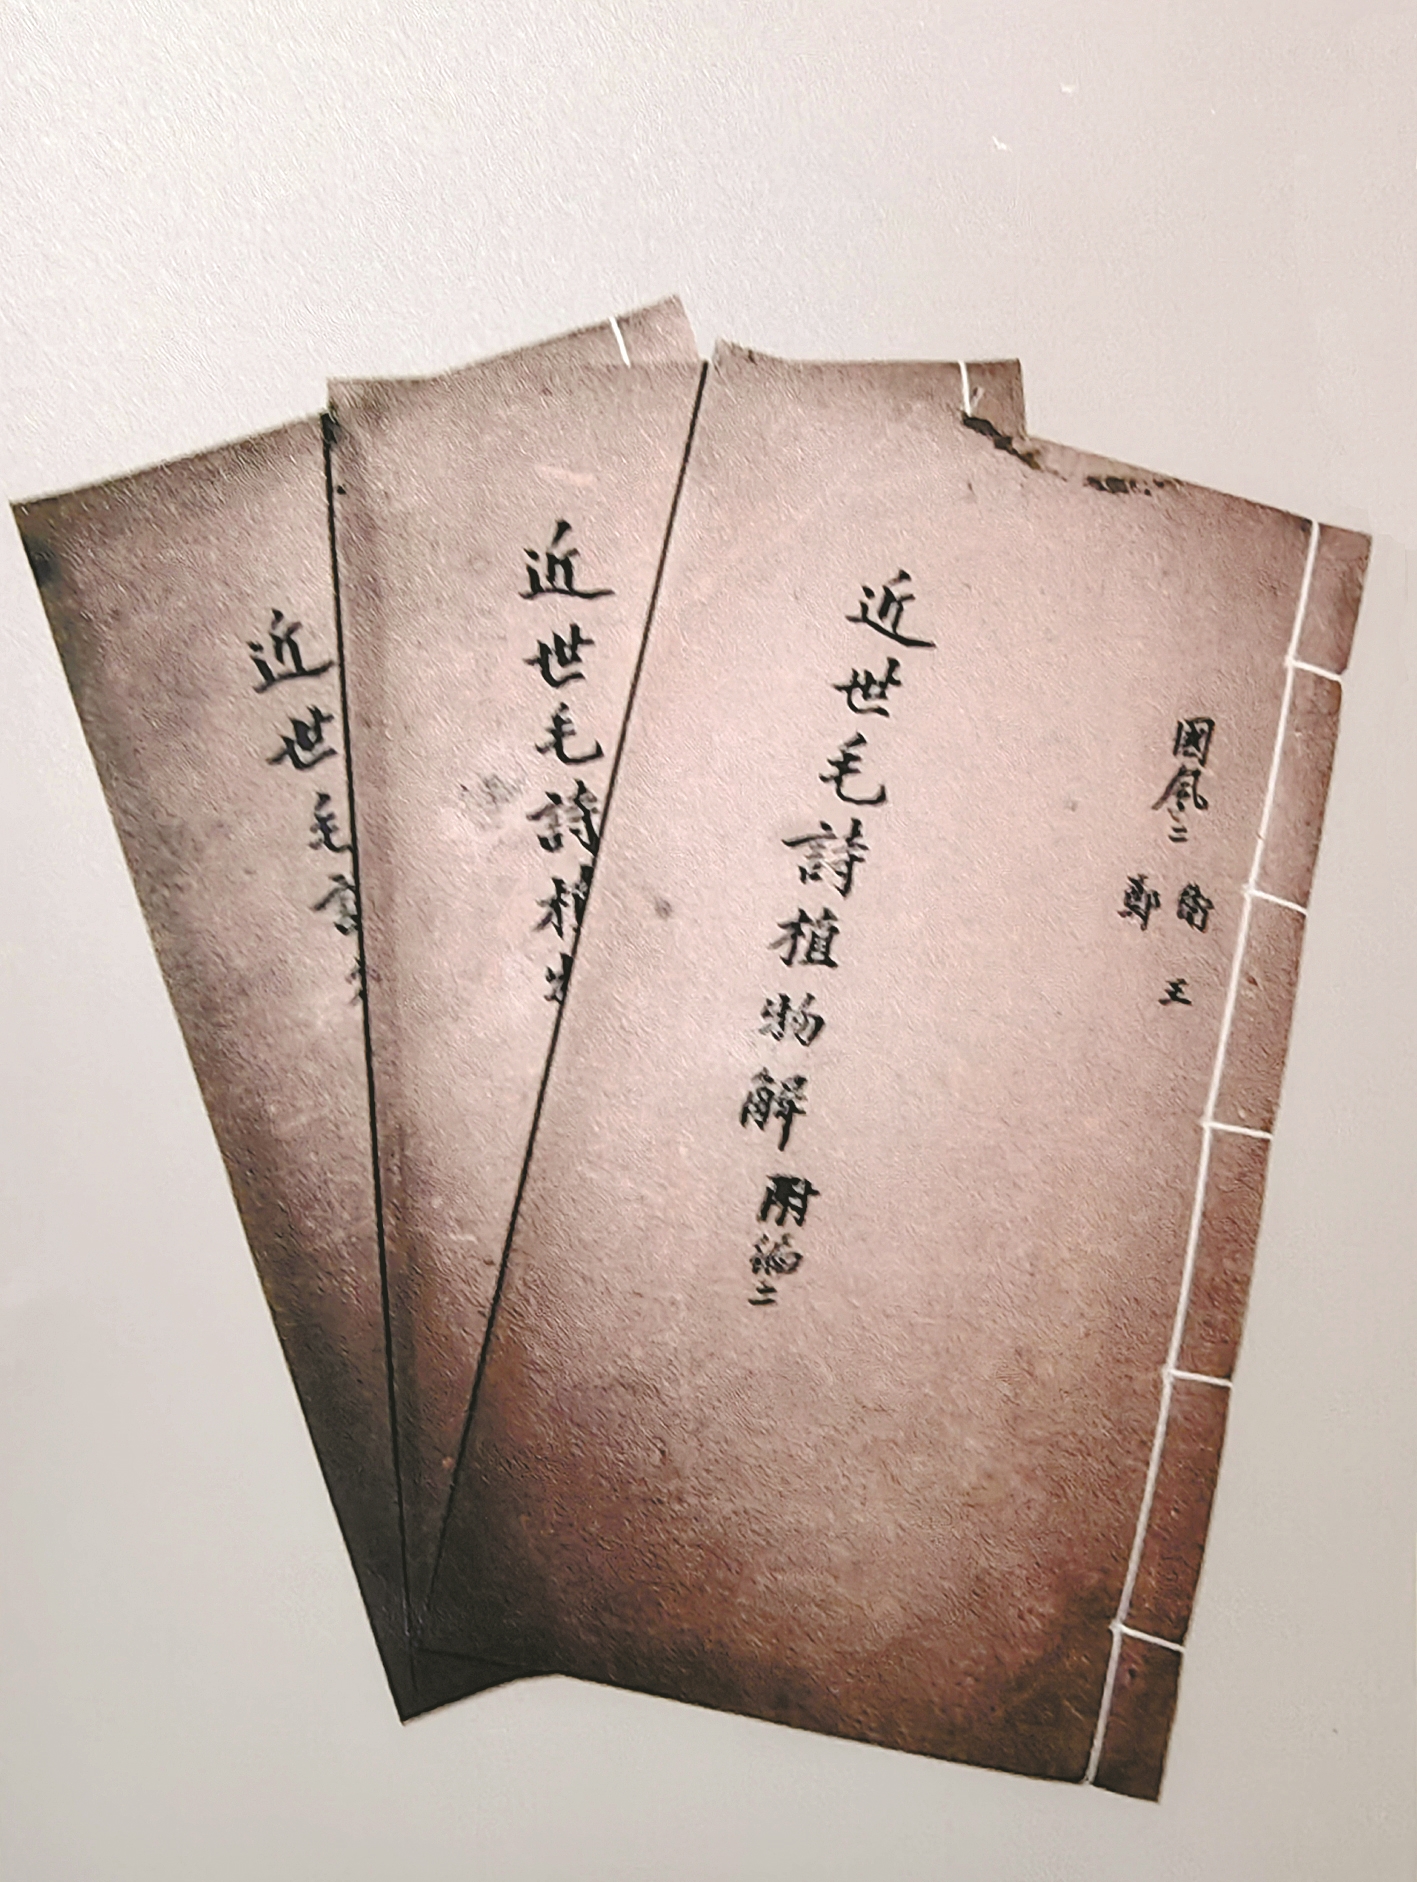 國風二
衛 王
鄭
近世毛詩植物解 附編二
近世毛詩植物
近世毛詩